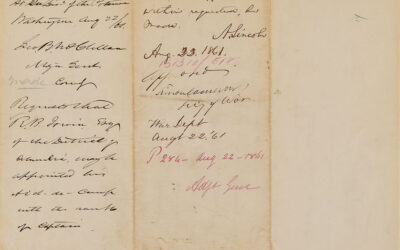 Washington Aug 22/61.
Geo B McClellan
Maj Genl
Comg
Requests that
R. B. Irwin Esq
of the District of
Columbia, may be
appointed his
Aid-de-Camp
with the rank
of Captain.
within requested, be
made.
A. Lincoln
Aug. 22. 1861.
Approved
Simon Cameron
Secy of War
War Dept
Augt 22 '61
P 284 - Aug 22 - 1861
Adjt Genl